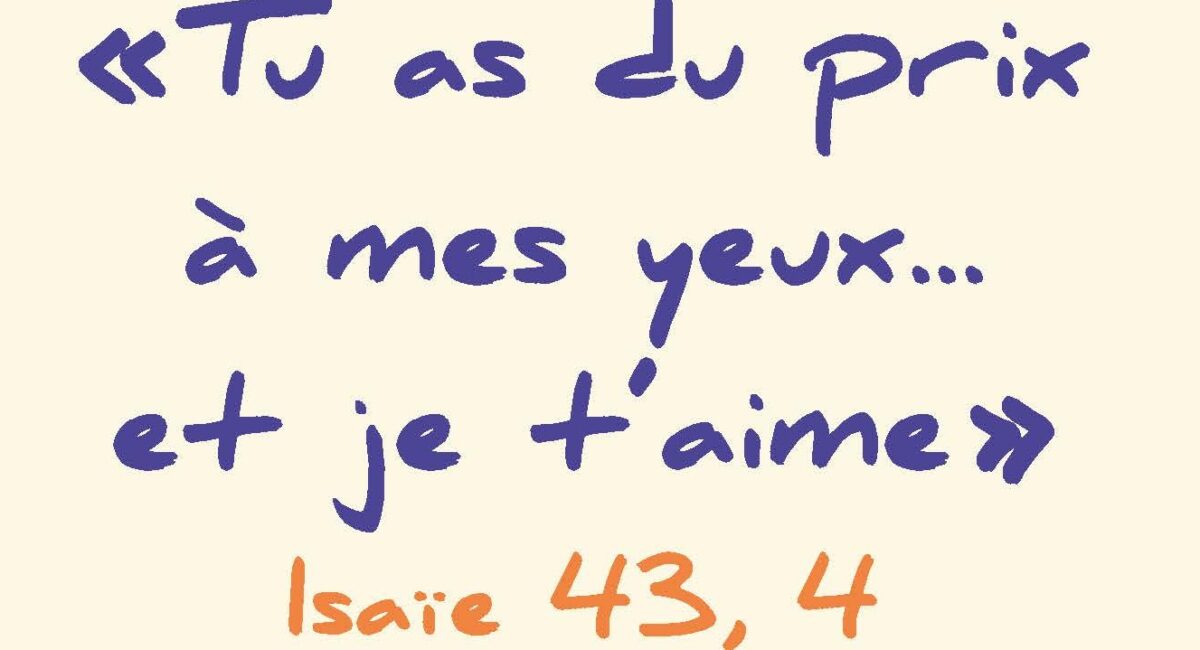 «Tu as du prix
à mes yeux...
et je t'aime»
Isaïe 43, 4